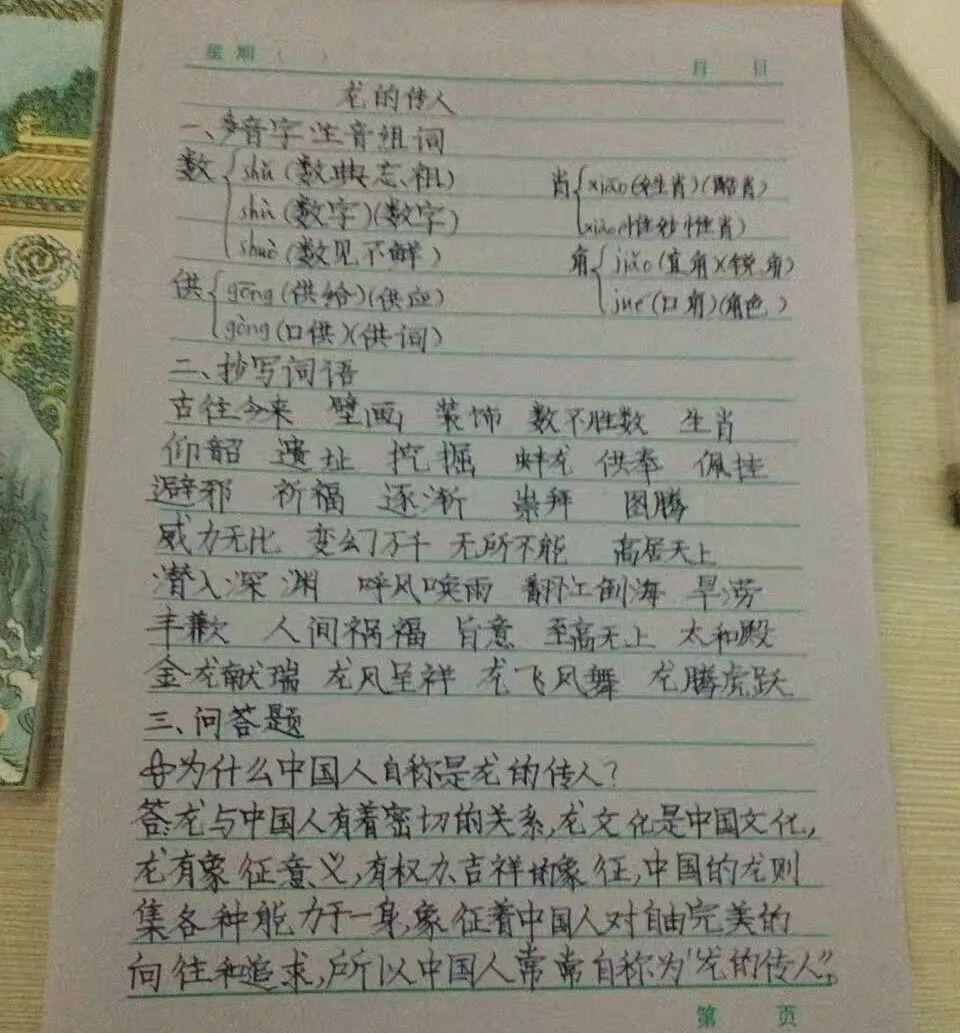 星期（ ）
月 日
龙的传人
一、多音字注音组词
数 shǔ (数典忘祖)
shù (数字)(数字)
shuò (数见不鲜)
肖 xiào (生肖)
xiào 惟妙惟肖)
角 jiǎo (直角)(锐角)
jué (口角)(角色)
供 gōng (供给)(供应)
gòng (口供)(供词)
二、抄写词语
古往今来 壁画 装饰 数不胜数 生肖
仰韶 遗址 挖掘 蚌龙 供奉 佩挂
避邪 祈福 逐渐 崇拜 图腾
威力无比 变幻万千 无所不能 高居天上
潜入深渊 呼风唤雨 翻江倒海 旱涝
丰歉 人间祸福 旨意 至高无上 太和殿
金龙献瑞 龙凤呈祥 龙飞凤舞 龙腾虎跃
三、问答题
为什么中国人自称是龙的传人?
答:龙与中国人有着密切的关系,龙文化是中国文化,
龙有象征意义,有权力、吉祥的象征,中国的龙则
集各种能力于一身,象征着中国人对自由完美的
向往和追求,所以中国人常常自称为"龙的传人",
第 页